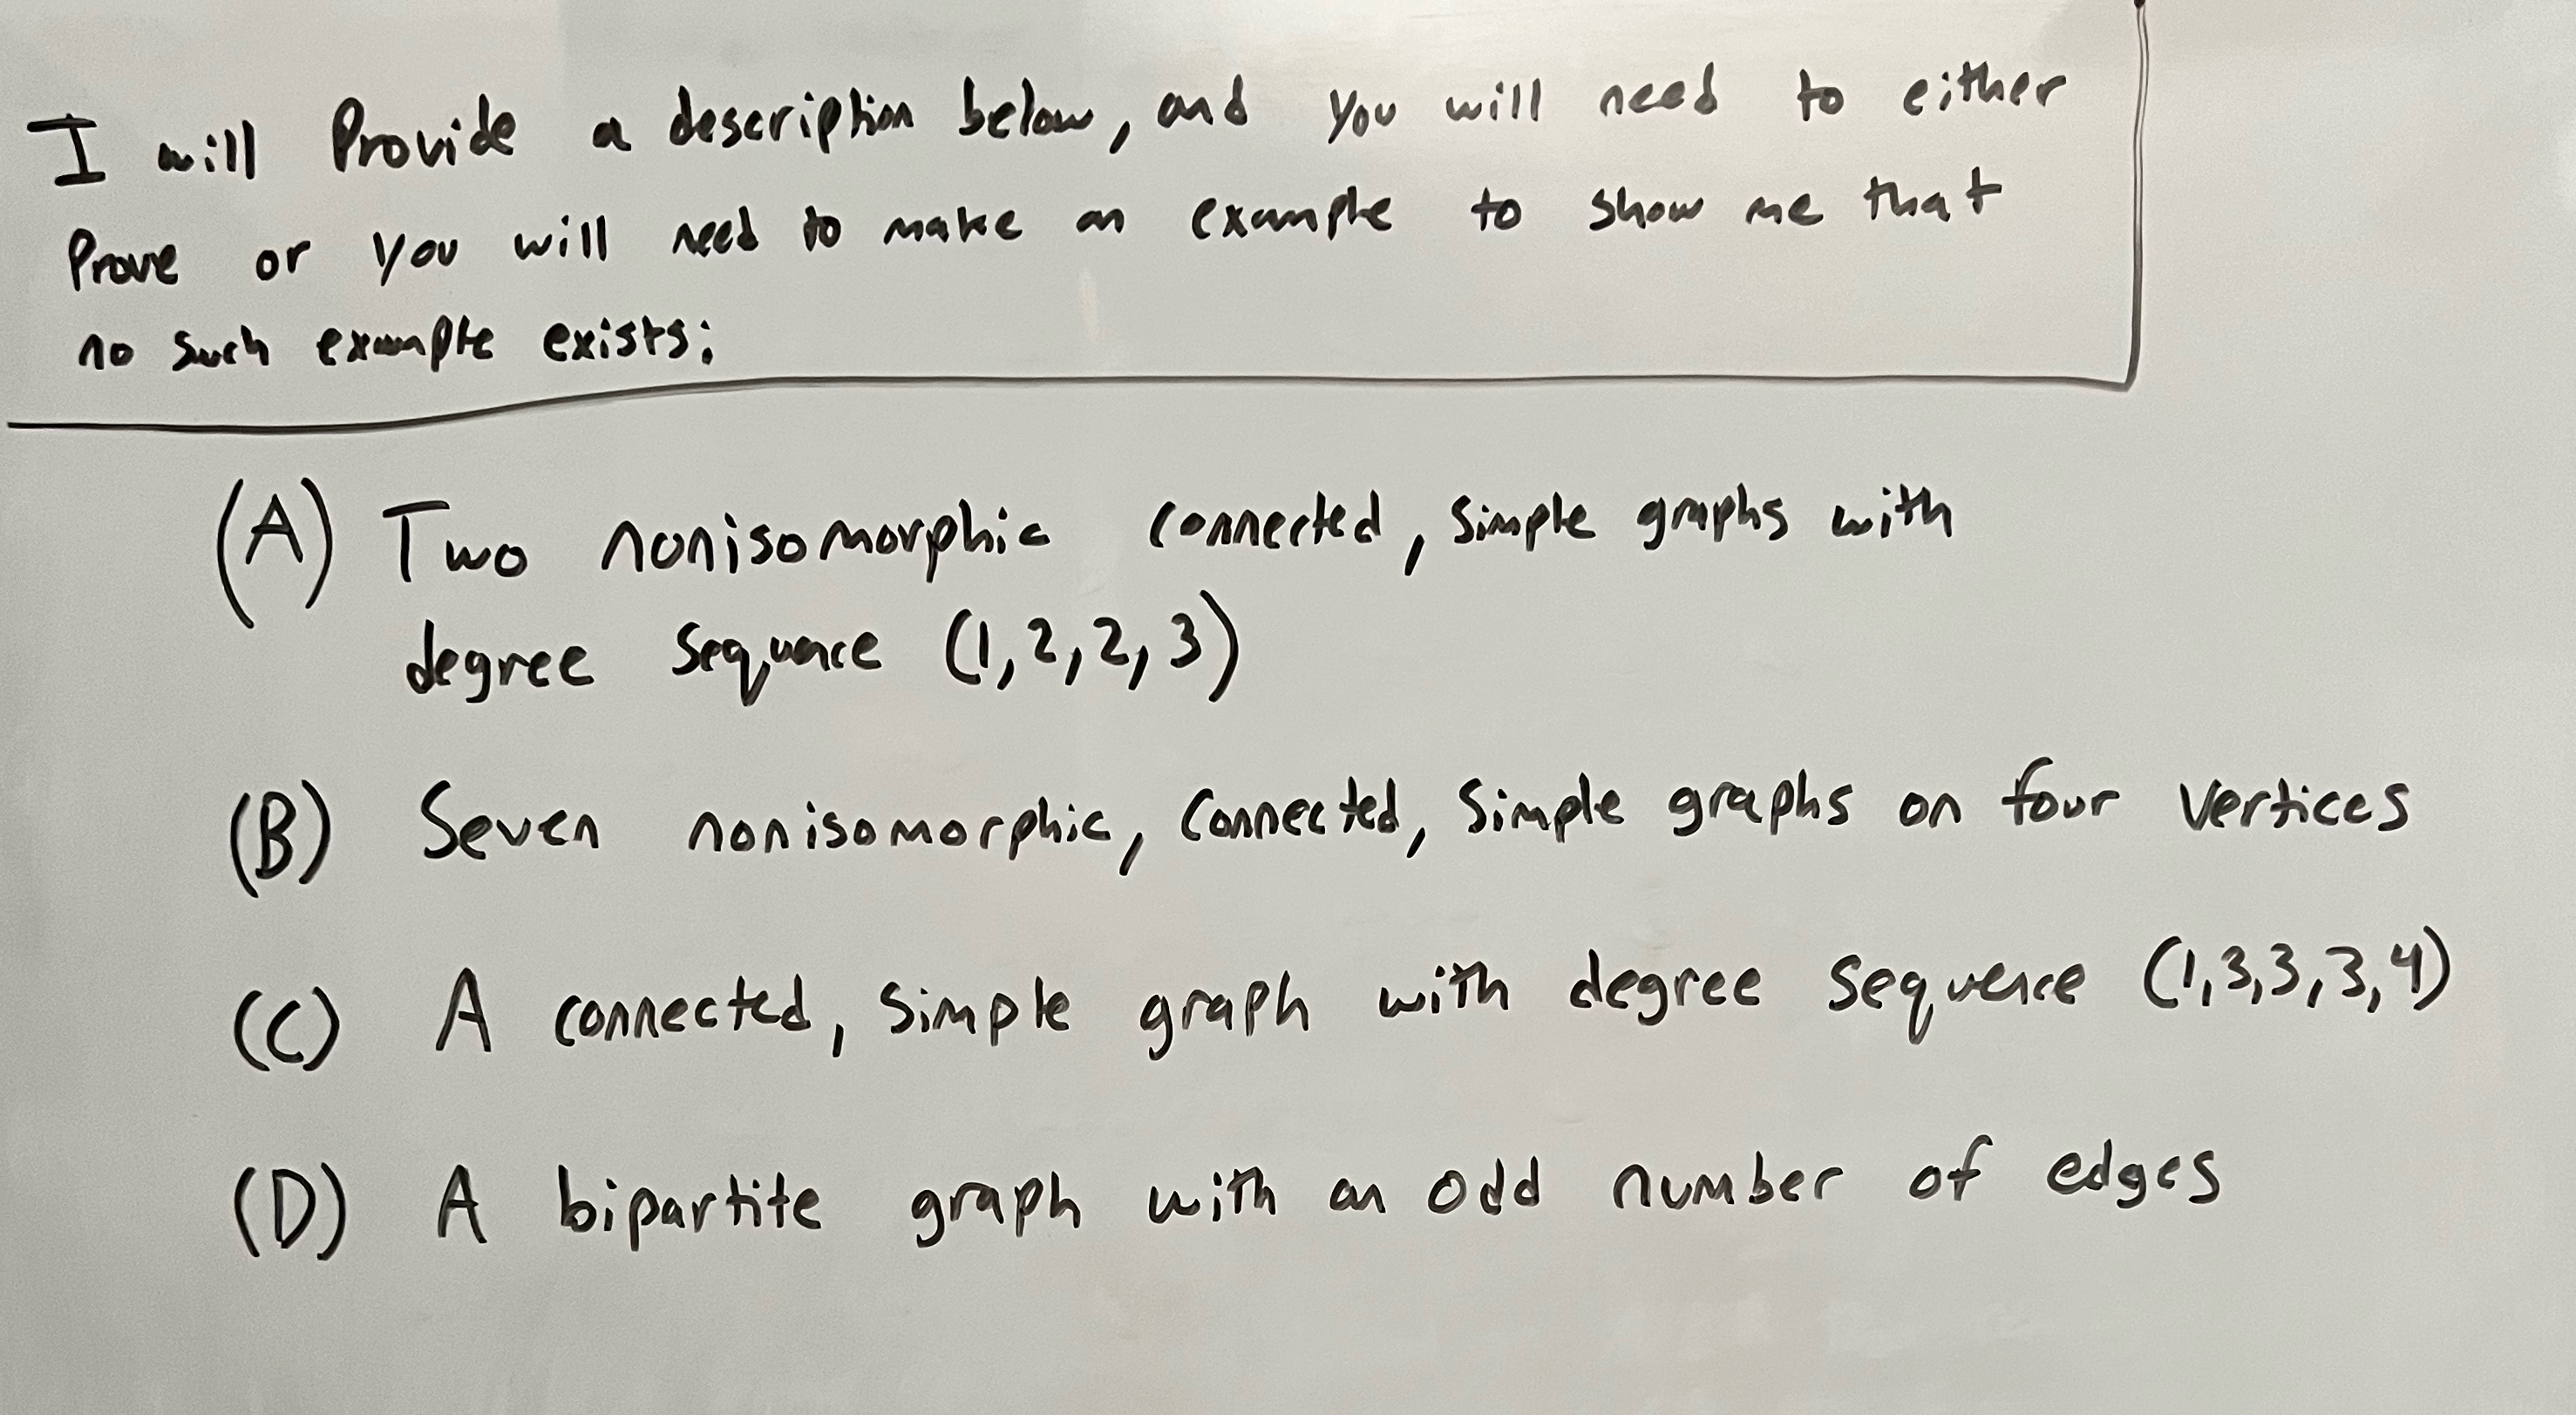 I will Provide a description below, and you will need to either
Prove or you will need to make an example to show me that
no such example exists:
(A) Two nonisomorphic connected, simple graphs with
degree sequence (1,2,2,3)
(B) Seven nonisomorphic, connected, simple graphs on four vertices
(C) A connected, simple graph with degree sequence (1,3,3,3,4)
(D) A bipartite graph with an odd number of edges